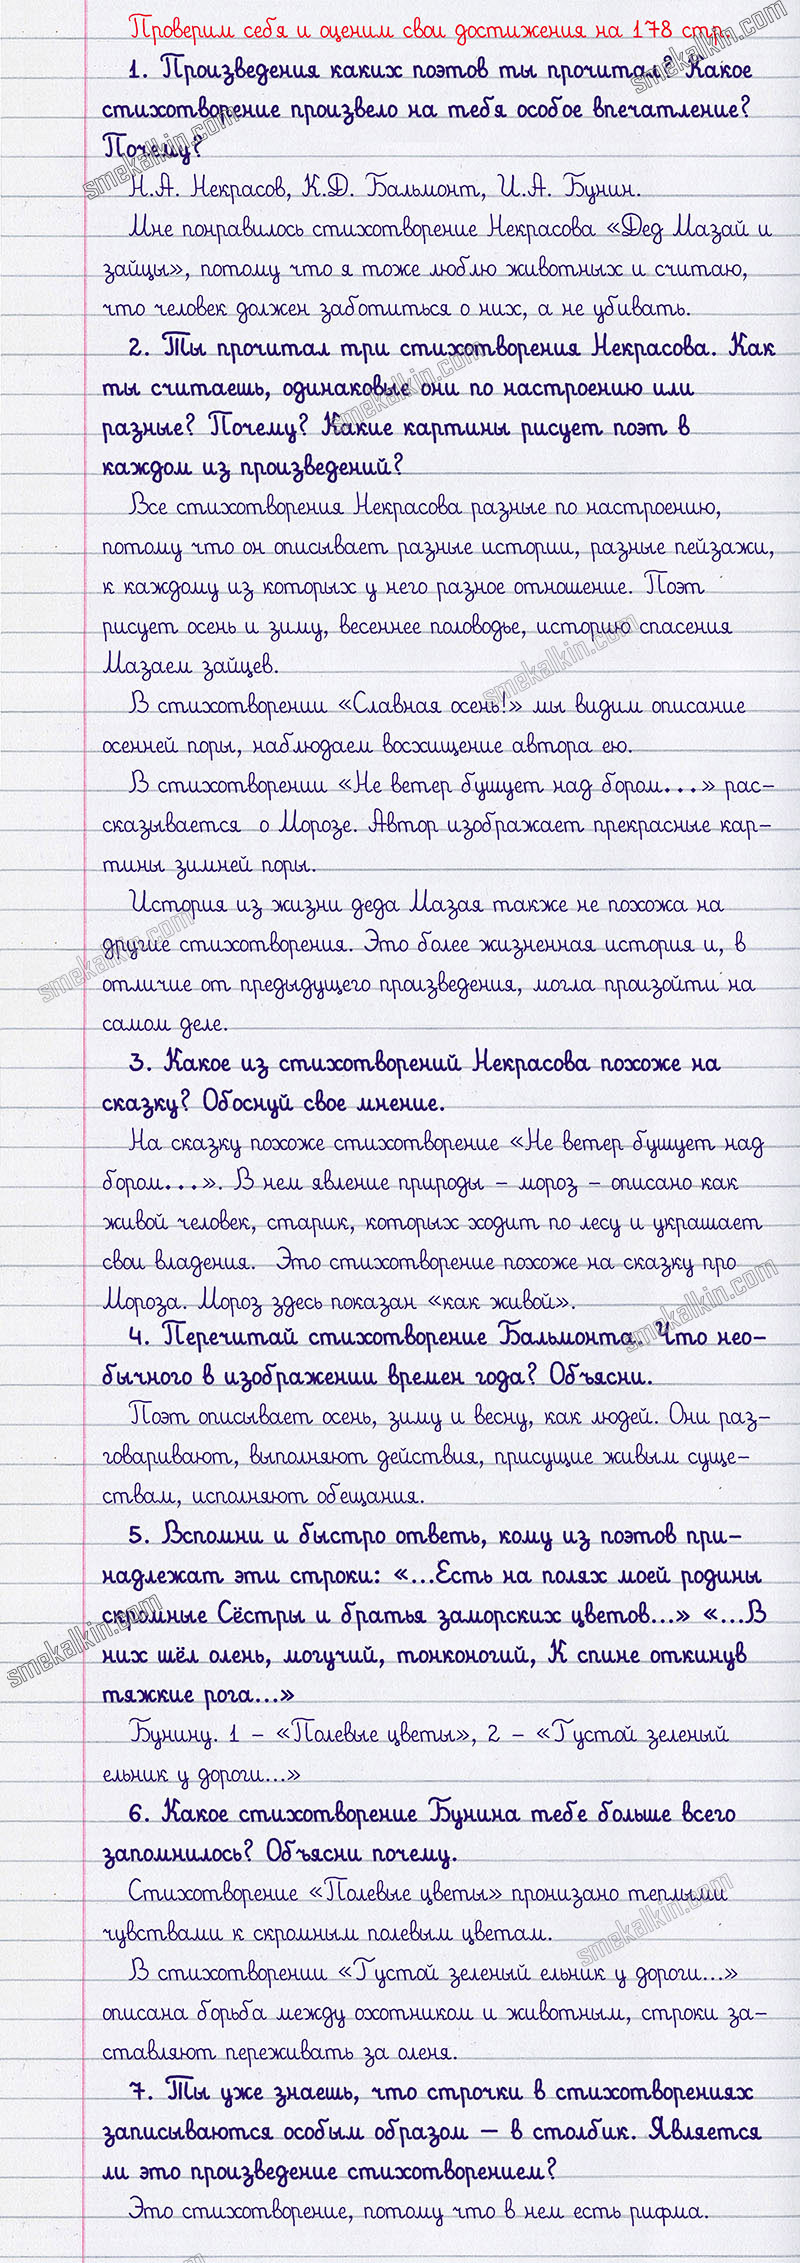 Проверим себя и оценим свои достижения на 178 стр.
1. Произведения каких поэтов ты прочитал? Какое
стихотворение произвело на тебя особое впечатление?
Почему?
Н.А. Некрасов, К.Д. Бальмонт, И.А. Бунин.
Мне понравилось стихотворение Некрасова «Дед Мазай и
зайцы», потому что я тоже люблю животных и считаю,
что человек должен заботиться о них, а не убивать.
2. Ты прочитал три стихотворения Некрасова. Как
ты считаешь, одинаковые они по настроению или
разные? Почему? Какие картины рисует поэт в
каждом из произведений?
Все стихотворения Некрасова разные по настроению,
потому что он описывает разные истории, разные пейзажи,
к каждому из которых у него разное отношение. Поэт
рисует осень и зиму, весеннее половодье, историю спасения
Мазаем зайцев.
В стихотворении «Славная осень!» мы видим описание
осенней поры, наблюдаем восхищение автора ею.
В стихотворении «Не ветер бушует над бором...» рас-
сказывается о Морозе. Автор изображает прекрасные кар-
тины зимней поры.
История из жизни деда Мазая также не похожа на
другие стихотворения. Это более жизненная история и, в
отличие от предыдущего произведения, могла произойти на
самом деле.
3. Какое из стихотворений Некрасова похоже на
сказку? Обоснуй свое мнение.
На сказку похоже стихотворение «Не ветер бушует над
бором...». В нем явление природы - мороз - описано как
живой человек, старик, которых ходит по лесу и украшает
свои владения. Это стихотворение похоже на сказку про
Мороза. Мороз здесь показан «как живой».
4. Перечитай стихотворение Бальмонта. Что нео-
бычного в изображении времен года? Объясни.
Поэт описывает осень, зиму и весну, как людей. Они раз-
говаривают, выполняют действия, присущие живым суще-
ствам, исполняют обещания.
5. Вспомни и быстро ответь, кому из поэтов при-
надлежат эти строки: «...Есть на полях моей родины
скромные Сёстры и братья заморских цветов...» «...В
них шёл олень, могучий, тонконогий, К спине откинув
тяжкие рога...»
Бунину. 1 - «Полевые цветы», 2 - «Густой зеленый
ельник у дороги...»
6. Какое стихотворение Бунина тебе больше всего
запомнилось? Объясни почему.
Стихотворение «Полевые цветы» пронизано теплыми
чувствами к скромным полевым цветам.
В стихотворении «Густой зеленый ельник у дороги...»
описана борьба между охотником и животным, строки за-
ставляют переживать за оленя.
7. Ты уже знаешь, что строчки в стихотворениях
записываются особым образом — в столбик. Является
ли это произведение стихотворением?
Это стихотворение, потому что в нем есть рифма.
smekalkin.com
smekalkin.com
smekalkin.com
smekalkin.com
smekalkin.com
smekalkin.com
smekalkin.com
smekalkin.com